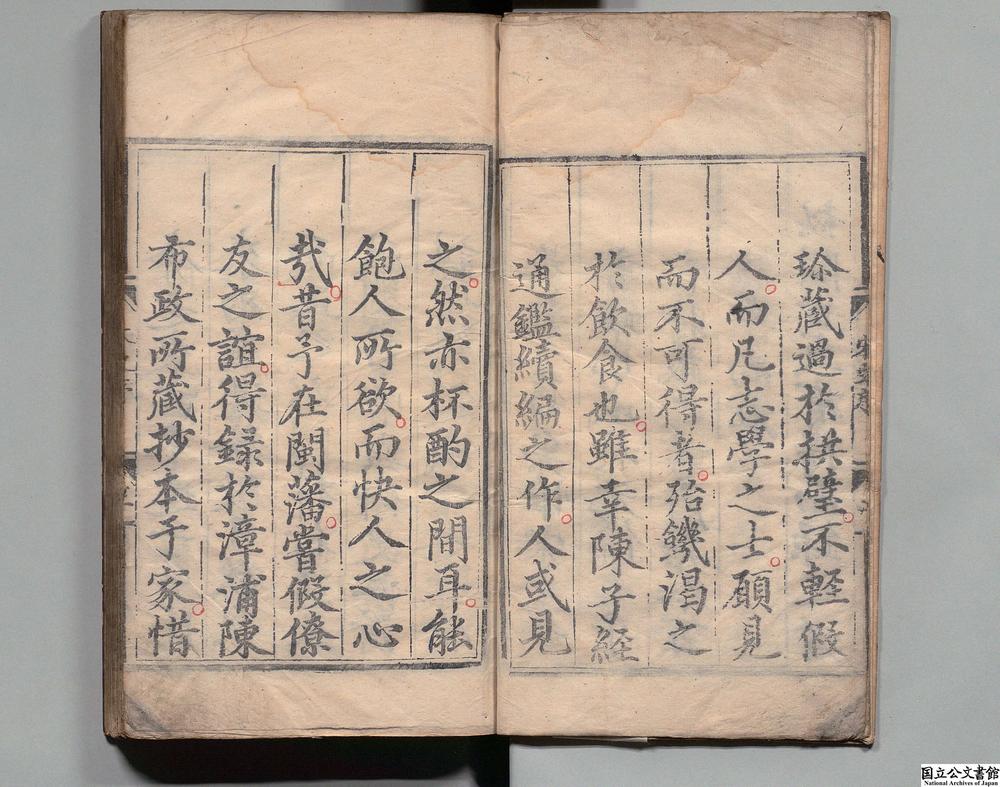 珎藏過於拱璧不輕假
人而凡志學之士願見
而不可得者殆饑渴之
於飲食也雖幸陳子經
通鑑續編之作人或見
之然亦杯酌之間耳能
飽人所欲而快人之心
㢤昔予在閩藩嘗假僚
友之誼得録於漳浦陳
布政所藏抄本予家惜
国立公文書館
National Archives of Japan